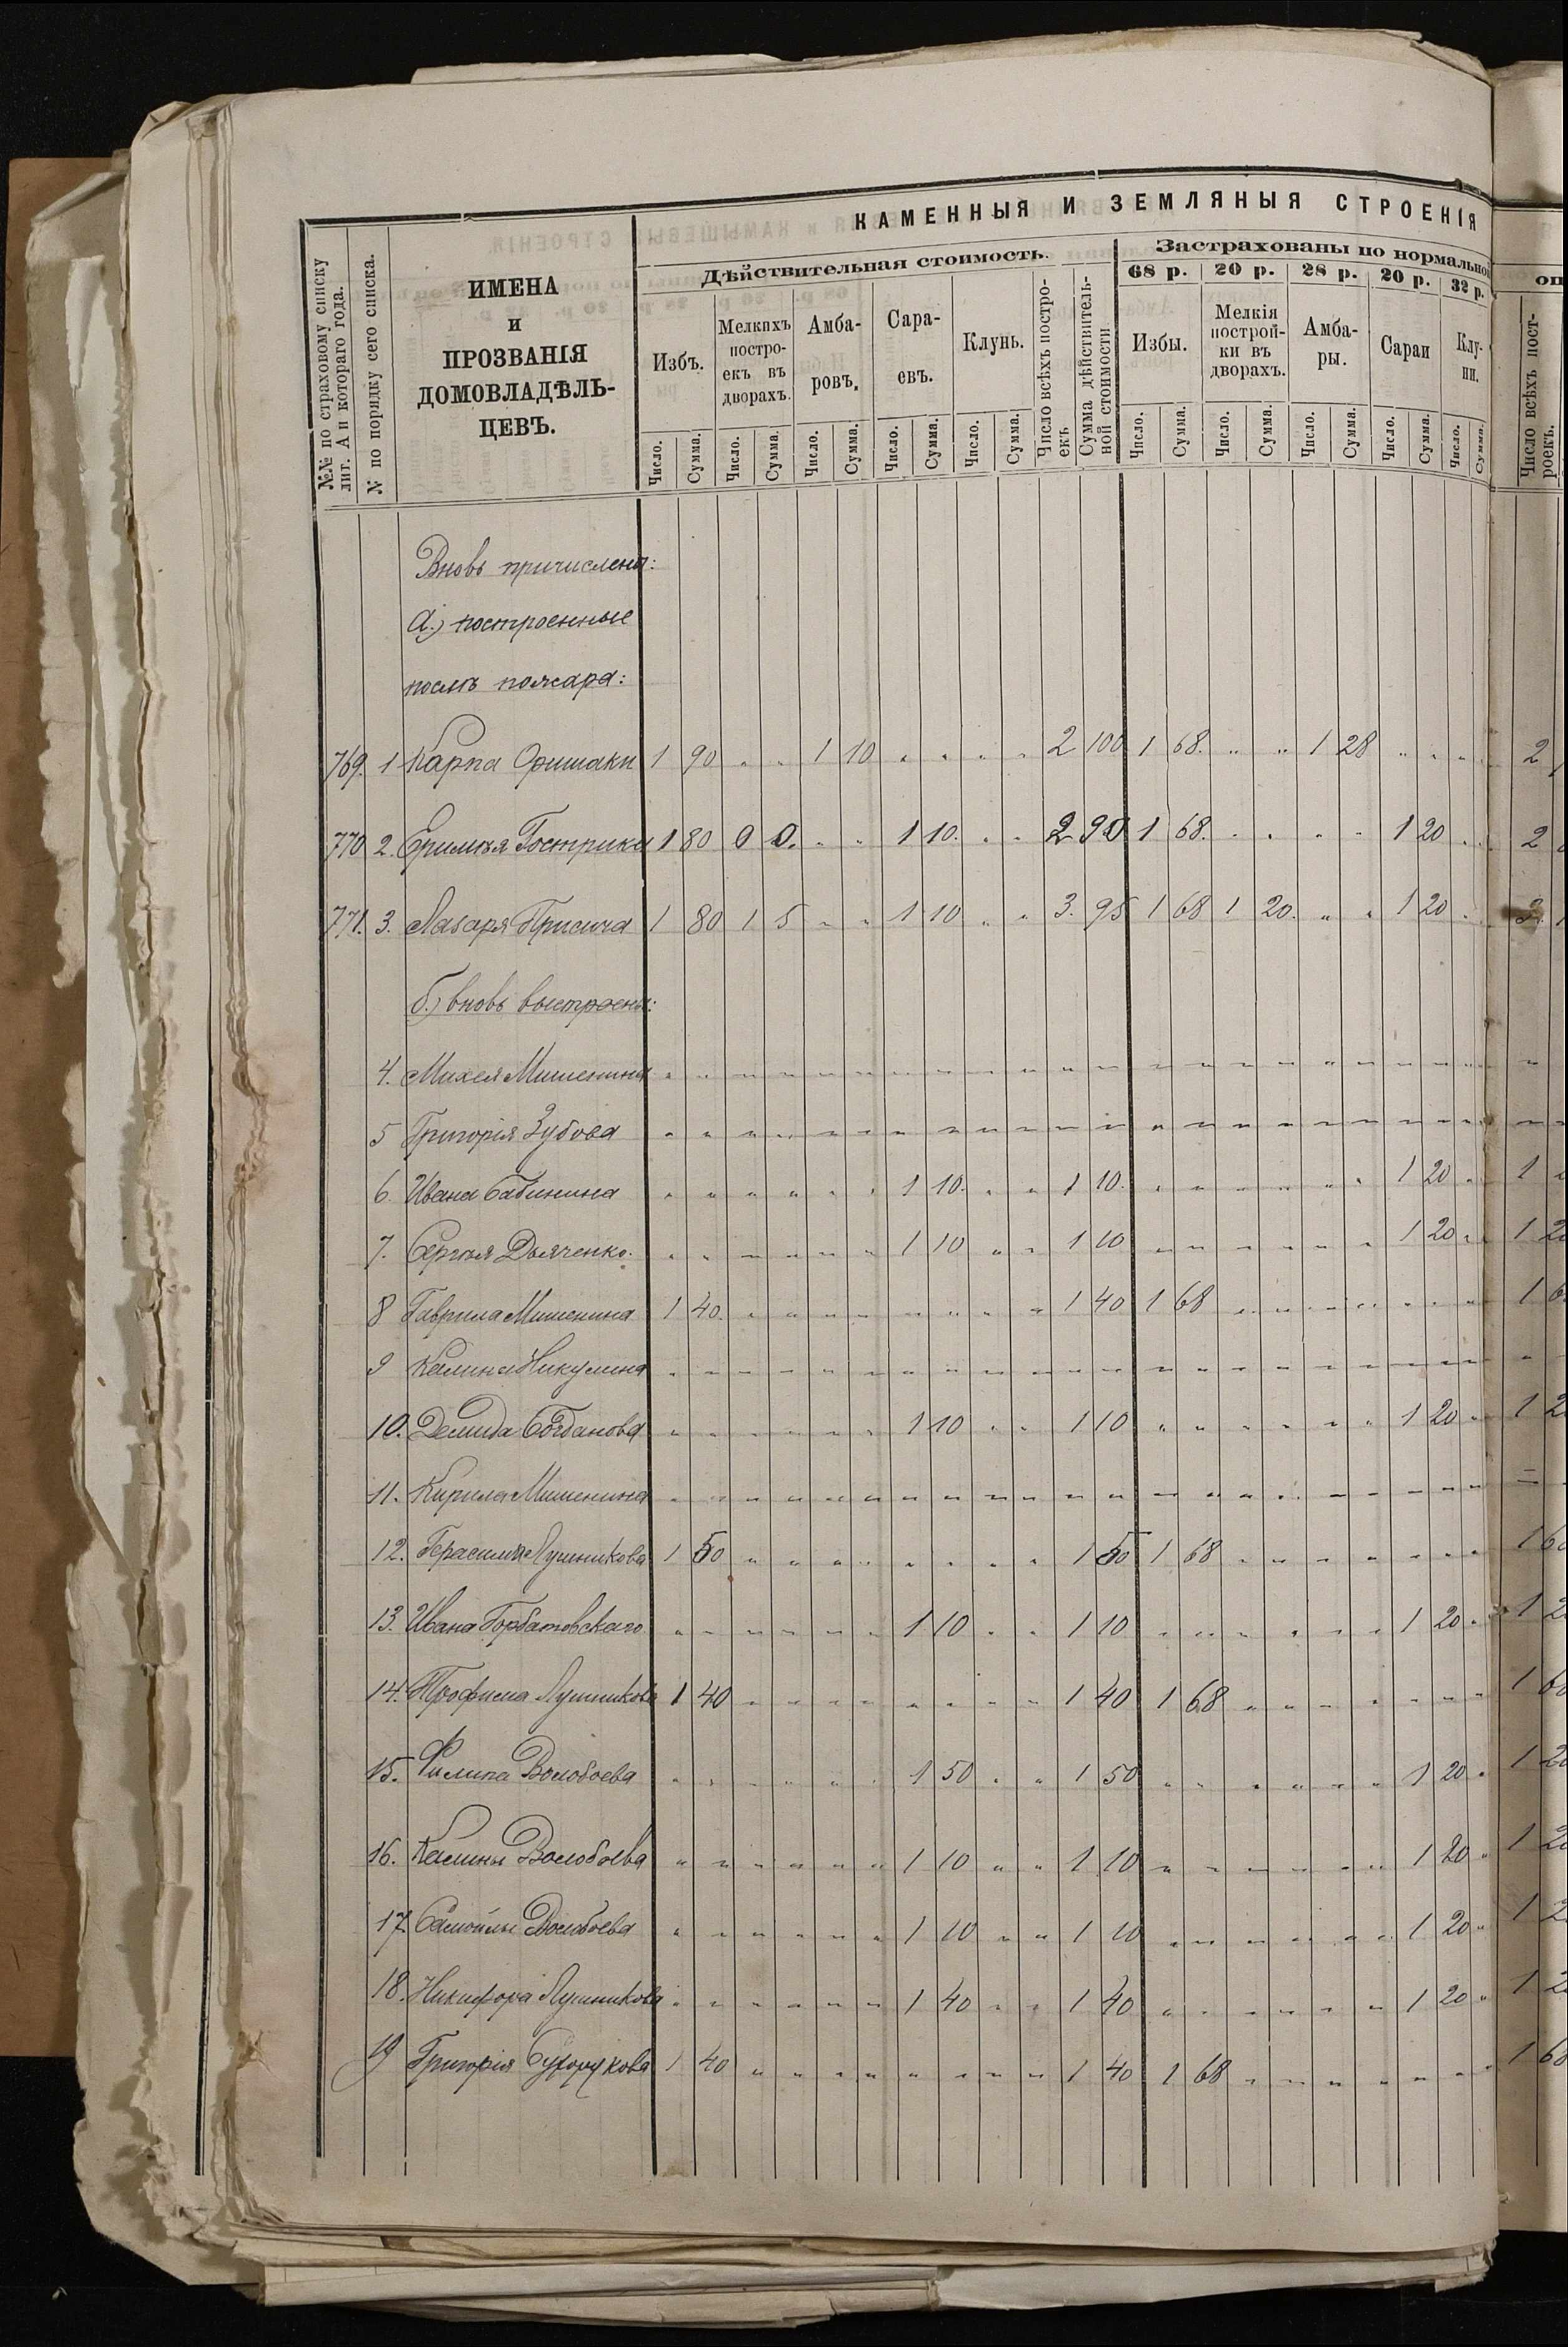 КАМЕННЫЯ И ЗЕМЛЯНЫЯ СТРОЕНІЯ
№№ по страховому списку лит. А и котораго года.
№ по порядку сего списка.
ИМЕНА
и
ПРОЗВАНІЯ
ДОМОВЛАДѢЛЬ-
ЦЕВЪ.
Дѣйствительная стоимость.
Застрахованы по нормально
68 р. 20 р. 28 р. 20 р. 32 р.
Избъ.
Мелкихъ
постро-
екъ въ
дворахъ.
Амба-
ровъ.
Сара-
евъ.
Клунь.
Число всѣхъ постро-
екъ
Сумма дѣйствитель-
ной стоимости
Избы.
Мелкія
построй-
ки въ
дворахъ.
Амба-
ры.
Сараи
Клу-
ни.
Число всѣхъ пост-
роекъ.
Число. Сумма. Число. Сумма. Число. Сумма. Число. Сумма. Число. Сумма. Число. Сумма. Число. Сумма. Число. Сумма. Число. Сумма. Число. Сумма.
Вновь причислены:
а) построенные
послѣ пожара:
769. 1 Карпа 1 90 " " 1 10 " " " " 2 100 1 68. " " 1 28 " " " 2
770 2. Еримѣя 1 80 0 0. " " 1 10. " " 2 90 1 68. " " " " 1 20 " 2
771. 3. Лазаря 1 80 1 5 " " 1 10 " " 3. 95 1 68 1 20. " " 1 20 "
б) вновь выстроены:
4. Михея Мишенина " " " " " " " " " " " " " " " " " " " " "
5 Григорія Зубова " " " " " " " " " " " " " " " " " " " " "
6. Ивана Бабинина " " " " " " 1 10. " " 1 10. " " " " " " 1 20 " 1
7. Сергѣя Дьяченко. " " " " " " 1 10 " " 1 10 " " " " " " 1 20 " 1 20
8 Гаврила Мишенина 1 40. " " " " " " " " 1 40 1 68 " " " " " " " 1 6
9 Калина Никулина " " " " " " " " " " " " " " " " " " " " "
10. Демида Богданова " " " " " " 1 10 " " 1 10 " " " " " " 1 20 " 1 2
11. Кирила Мишенина " " " " " " " " " " " " " " " " " " " " "
12. Герасима Лушникова 1 50 " " " " " " " " 1 50 1 68 " " " " " " " 1 6
13. Ивана Горбатовскаго " " " " " " 1 10 " " 1 10 " " " " " " 1 20 " 1 2
14. Трофима Лушникова 1 40 " " " " " " " " 1 40 1 68 " " " " " " " 1 6
15. Филипа Волобоева " " " " " " 1 50 " " 1 50 " " " " " " 1 20 " 1 20
16. Калины Волобоева " " " " " " 1 10 " " 1 10 " " " " " " 1 20 " 1 2
17. Самойлы Волобоева " " " " " " 1 10 " " 1 10 " " " " " " 1 20 " 1 2
18. Никифора Лушникова " " " " " " 1 40 " " 1 40 " " " " " " 1 20 " 1 2
19 Григорія Сухорукова 1 40 " " " " " " " " 1 40 1 68 " " " " " " " 1 68